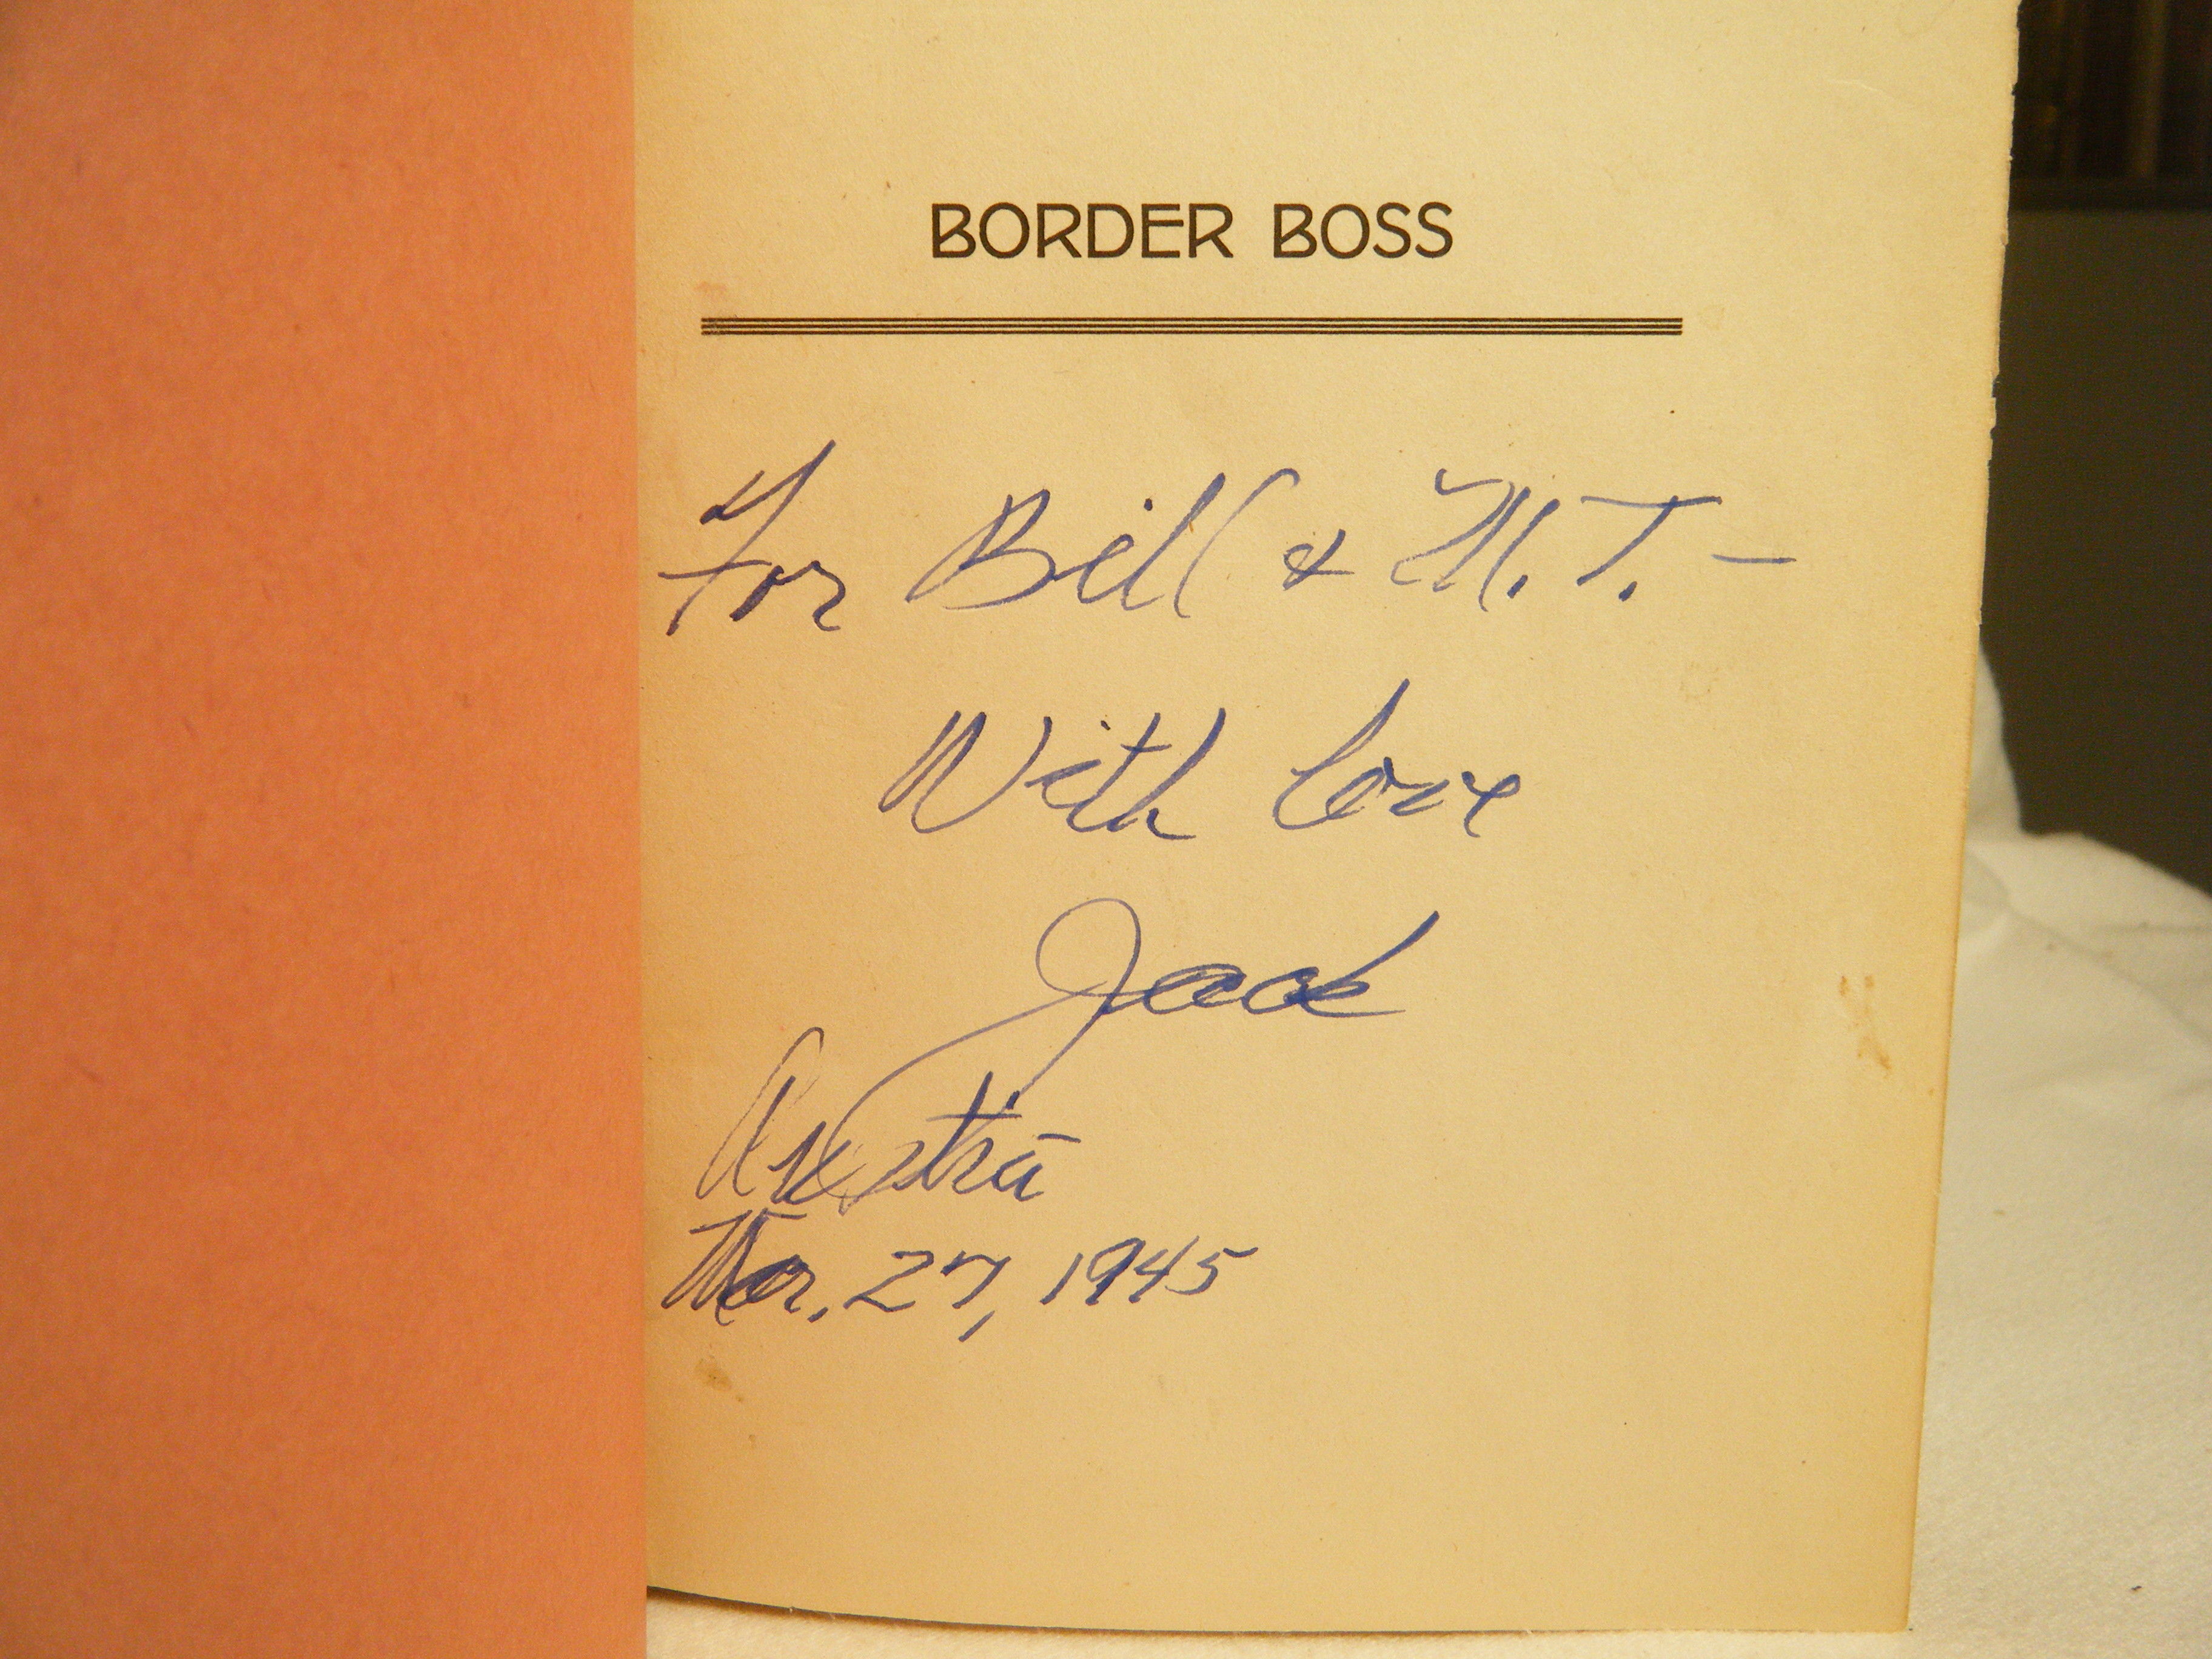 BORDER BOSS
For Bill & M. T. —
With love
Jack
Austin
Mar. 27, 1945